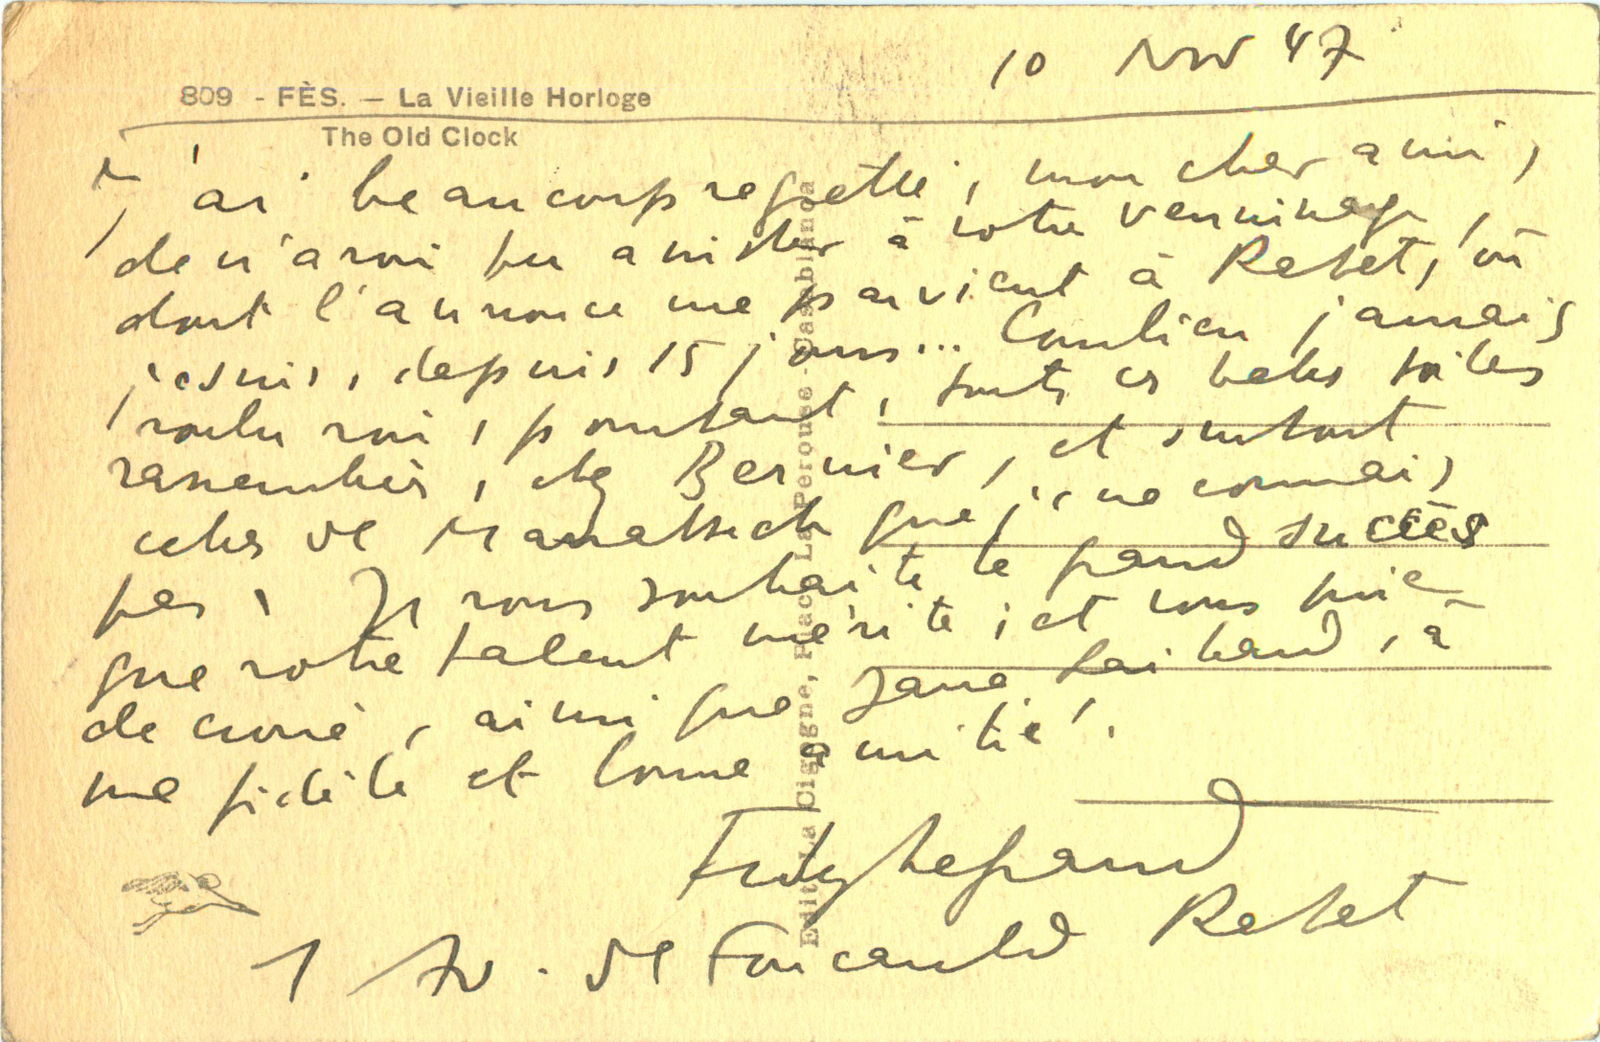 10 Nov 47
809 - FÈS. — La Vieille Horloge
The Old Clock
J'ai beaucoup regretté, mon cher ami,
de n'avoir pu assister à votre vernissage,
dont l'annonce me parvient à Rabat, où
je suis, depuis 15 jours... Combien j'aurais
voulu voir, pourtant, toutes ces belles toiles
rassemblées, chez Bernier, et surtout
celles de que je ne connais
pas. Je vous souhaite le grand succès
que votre talent mérite, et vous prie
de croire, ainsi que, à
ma fidèle et bonne amitié.
1 Av. de Foucauld Rabat
Edit. La Cigogne, Place La Pérouse - Casablanca